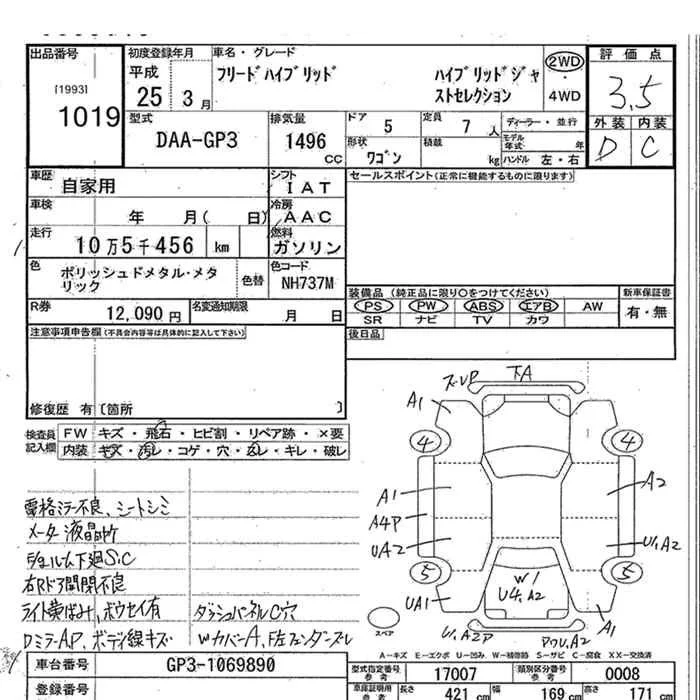 出品番号
[1993]
1019
初度登録年月
平成
25 3月
車名・グレード
フリードハイブリッド ハイブリッドジャ
ストセレクション
2WD
・
4WD
評価点
3.5
外装 内装
D C
型式
DAA-GP3
排気量
1496
CC
ドア
5
定員
7人
ディーラー・並行
形状
ワゴン
積載
kg
モデル年式
年
ハンドル 左・右
車歴
自家用
シフト
IAT
車検
年 月( 日)
冷房
AAC
走行
10万5千456 km
燃料
ガソリン
色
ポリッシュドメタル・メタ
リック
色替
色コード
NH737M
R券
12,090円
名変通知期限
月 日
セールスポイント(正常に機能するものに限ります)
装備品(純正品に限り○をつけてください)
新車保証書
PS PW ABS エアB AW
SR ナビ TV カワ
有・無
注意事項申告欄(不具合内容等は具体的に記入して下さい)
後日品
修復歴 有〔箇所 〕
検査員
記入欄
FW キズ・飛石・ヒビ割・リペア跡・×要
内装 キズ・汚レ・コゲ・穴・ムレ・キレ・破レ
電格ミラー不良、シートシミ
メーター液晶
下廻S.C
右Rドア開閉不良
ライト黄ばみ、ボウセイ有
ダッシュパネルC穴
DミラーAP、ボディ線キズ
WカバーA、F左フェンダーズレ
ズレP
下A
A1
4
4
A1
A2
A4P
UA2
U1,A2
5
5
UA1
W/
U4,A2
A1
スペア
U1,A2P
A-キズ E-エクボ U-凹み W-補修跡 S-サビ C-腐食 XX-交換済
車台番号
GP3-1069890
登録番号
型式指定番号
参考
17007
類別区分番号
参考
0008
車庫証明用
参考
長さ
421 cm
幅
169 cm
高さ
171 cm